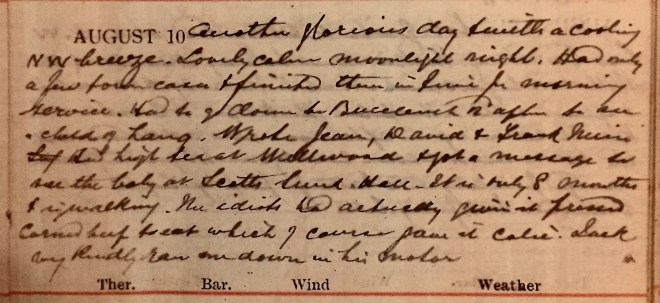 AUGUST 10 Another glorious day & with a cooling
NW breeze. Lovely calm moonlight night. Had only
a few town cases & finished them in time for morning
service. Had to go down to Buccleuch after to see
a child of Lang. Wrote Jean, David & Frank
high tea at Wellwood & got a message to
see the baby at Scotts Hall. It is only 8 months
& is walking. The idiots had actually given it pressed
corned beef to eat which of course gave it colic. Jack
very kindly ran me down in his motor
Ther. Bar. Wind Weather